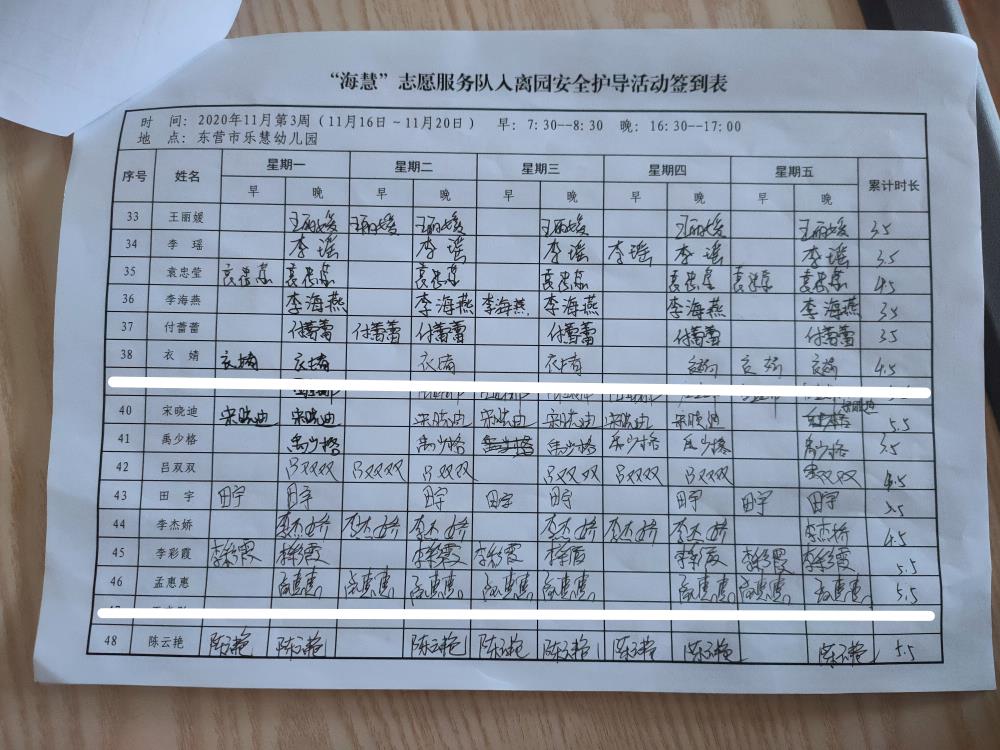 “海慧”志愿服务队入离园安全护导活动签到表
时 间：2020年11月第3周（11月16日～11月20日） 早：7:30--8:30 晚：16:30--17:00
地 点：东营市乐慧幼儿园
序号 姓名 星期一 星期二 星期三 星期四 星期五 累计时长
早 晚 早 晚 早 晚 早 晚 早 晚
33 王丽媛 王丽媛 王丽媛 王丽媛 王丽媛 王丽媛 王丽媛 3.5
34 李 瑶 李瑶 李瑶 李瑶 李瑶 李瑶 李瑶 3.5
35 袁忠莹 袁忠莹 袁忠莹 袁忠莹 袁忠莹 袁忠莹 袁忠莹 袁忠莹 4.5
36 李海燕 李海燕 李海燕 李海燕 李海燕 李海燕 李海燕 3.5
37 付蕾蕾 付蕾蕾 付蕾蕾 付蕾蕾 付蕾蕾 付蕾蕾 付蕾蕾 3.5
38 衣 婧 衣婧 衣婧 衣婧 衣婧 衣婧 衣婧 衣婧 4.5
40 宋晓迪 宋晓迪 宋晓迪 宋晓迪 宋晓迪 宋晓迪 宋晓迪 宋晓迪 宋晓迪 5.5
41 禹少格 禹少格 禹少格 禹少格 禹少格 禹少格 禹少格 禹少格 3.5
42 吕双双 吕双双 吕双双 吕双双 吕双双 吕双双 吕双双 吕双双 4.5
43 田 宇 田宇 田宇 田宇 田宇 田宇 田宇 田宇 田宇 5.5
44 李杰娇 李杰娇 李杰娇 李杰娇 李杰娇 李杰娇 李杰娇 李杰娇 4.5
45 李彩霞 李彩霞 李彩霞 李彩霞 李彩霞 李彩霞 李彩霞 李彩霞 李彩霞 5.5
46 孟惠惠 孟惠惠 孟惠惠 孟惠惠 孟惠惠 孟惠惠 孟惠惠 孟惠惠 孟惠惠 5.5
48 陈云艳 陈云艳 陈云艳 陈云艳 陈云艳 陈云艳 陈云艳 陈云艳 陈云艳 5.5